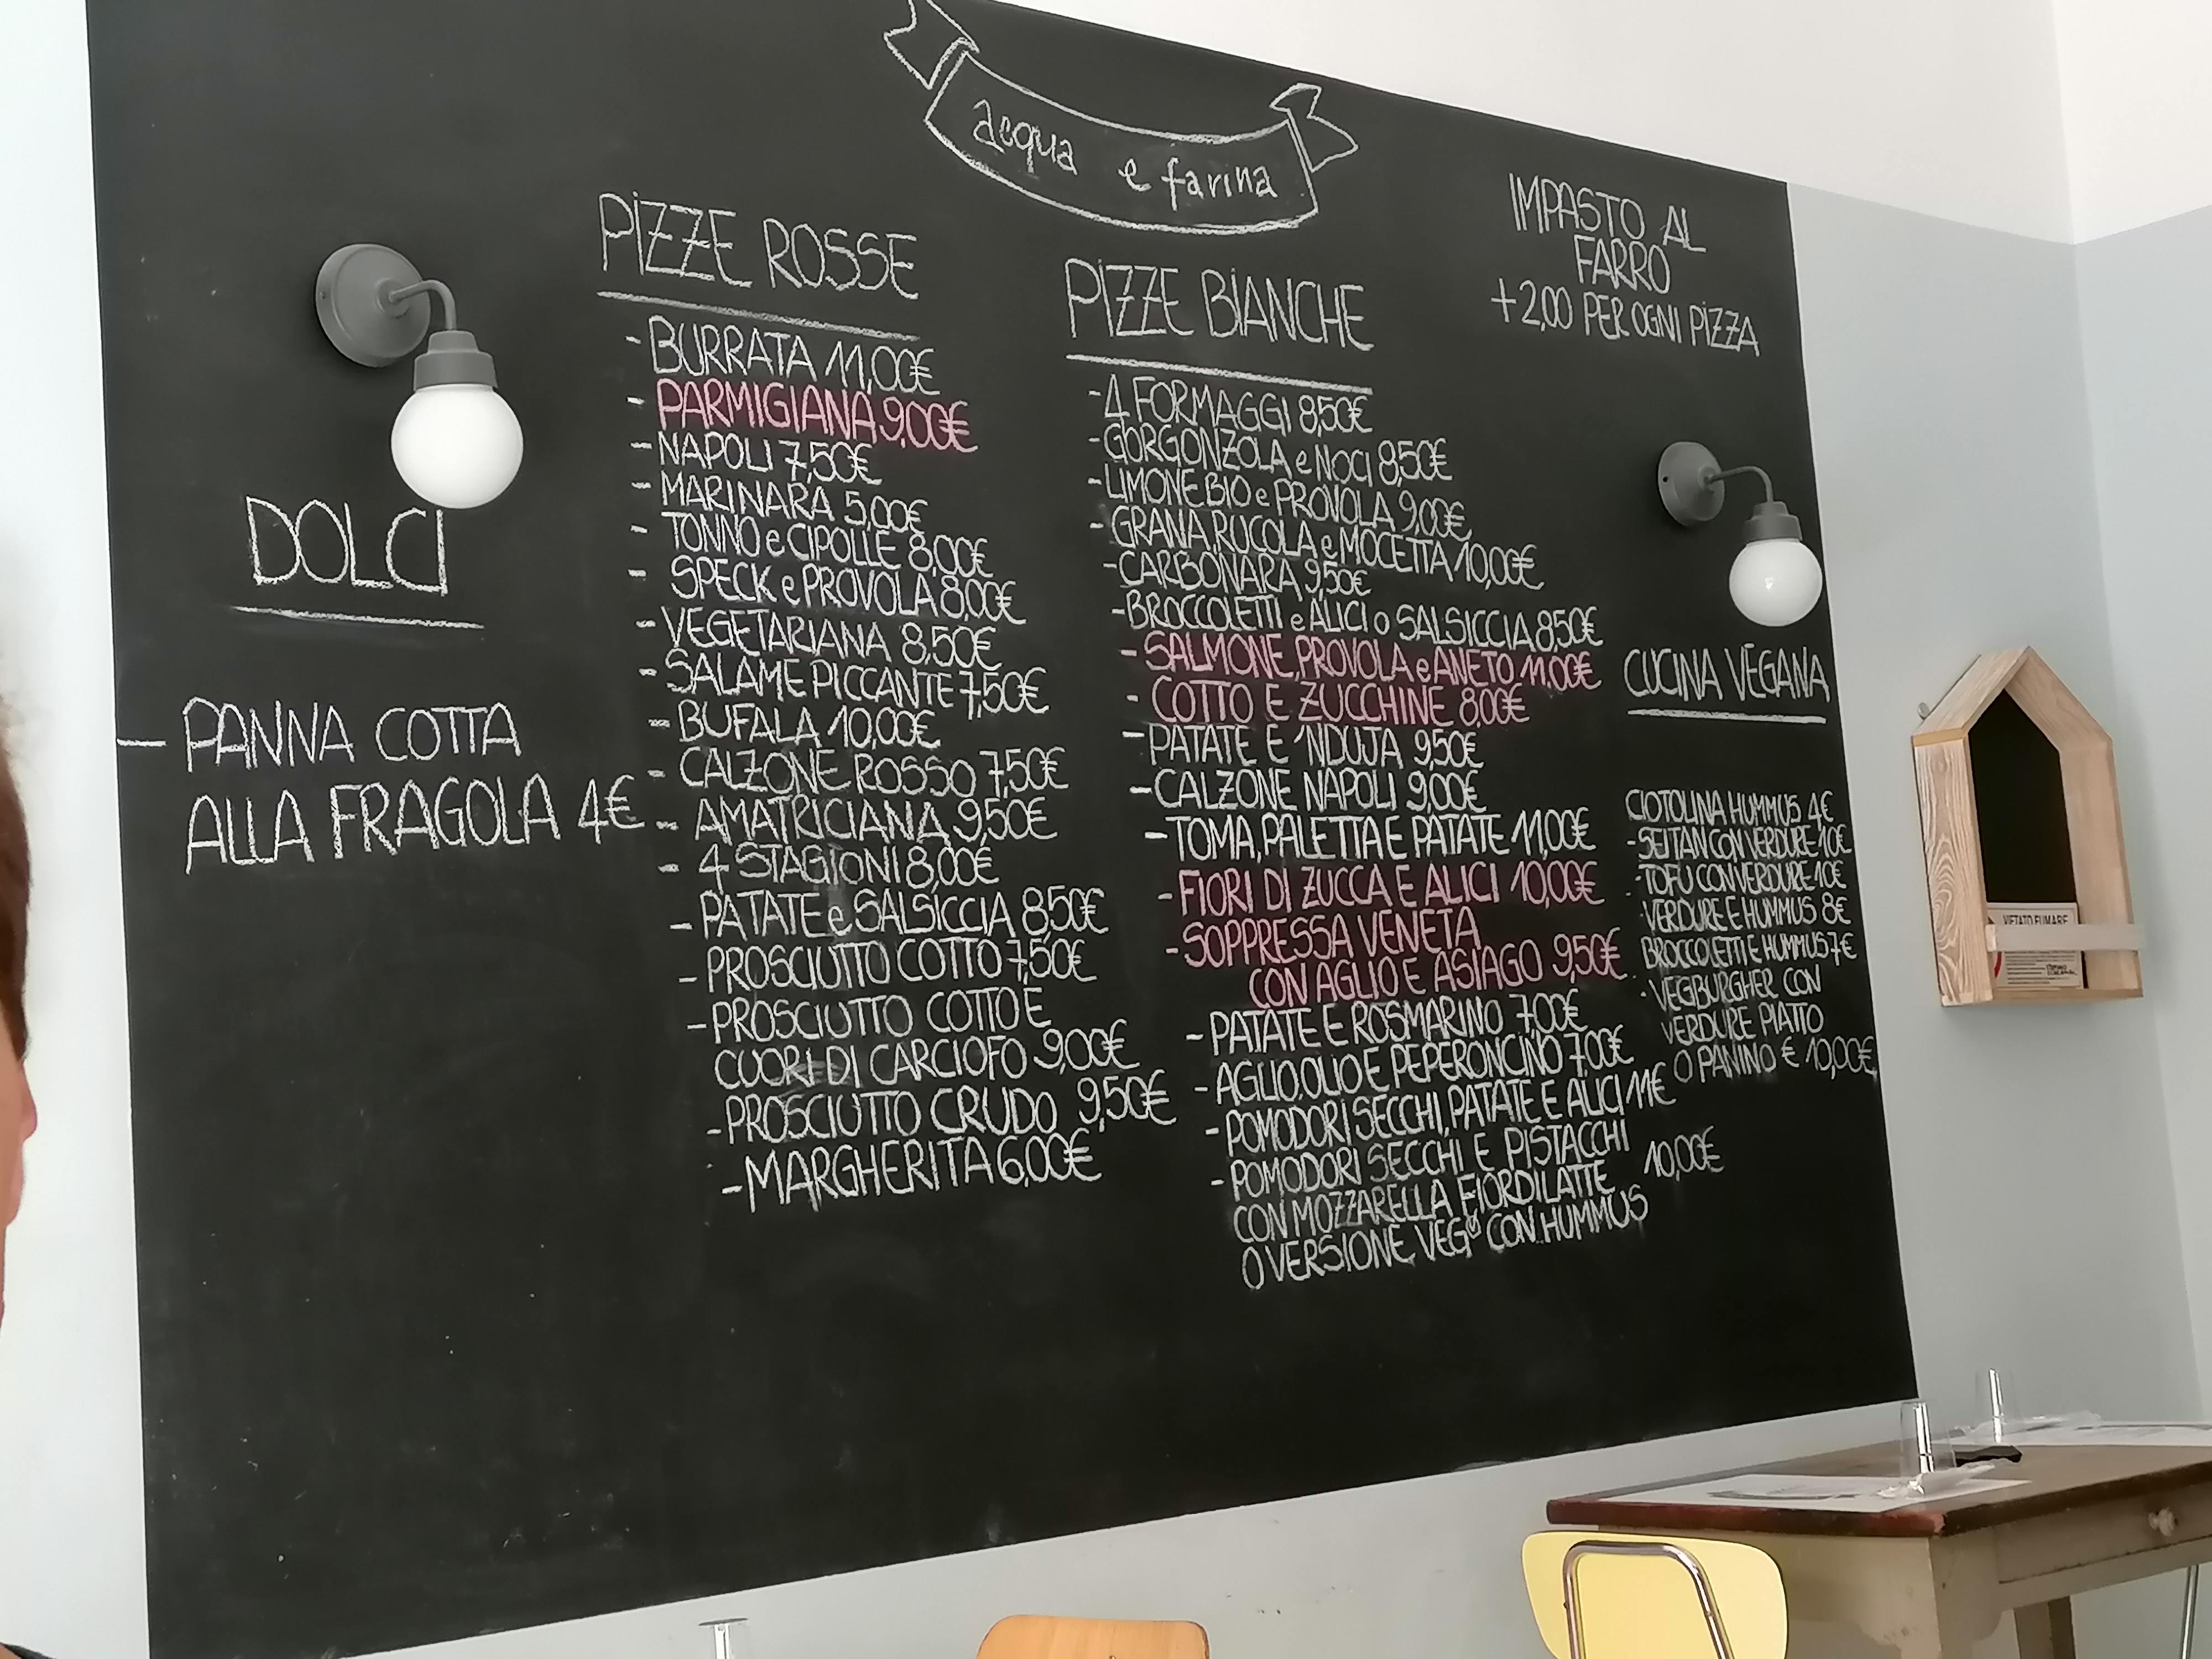 acqua e farina
DOLCI
- PANNA COTTA
ALLA FRAGOLA 4€
PIZZE ROSSE
- BURRATA 11,00€
- PARMIGIANA 9,00€
- NAPOLI 7,50€
- MARINARA 5,00€
- TONNO e CIPOLLE 8,00€
- SPECK e PROVOLA 8,00€
- VEGETARIANA 8,50€
- SALAME PICCANTE 7,50€
- BUFALA 10,00€
- CALZONE ROSSO 7,50€
- AMATRICIANA 9,50€
- 4 STAGIONI 8,00€
- PATATE e SALSICCIA 8,50€
- PROSCIUTTO COTTO 7,50€
- PROSCIUTTO COTTO E
CUORI DI CARCIOFO 9,00€
- PROSCIUTTO CRUDO 9,50€
- MARGHERITA 6,00€
PIZZE BIANCHE
- 4 FORMAGGI 8,50€
- GORGONZOLA e NOCI 8,50€
- LIMONE BIO e PROVOLA 9,00€
- GRANA, RUCOLA e MOCETTA 10,00€
- CARBONARA 9,50€
- BROCCOLETTI e ALICI o SALSICCIA 8,50€
- SALMONE, PROVOLA e ANETO 11,00€
- COTTO E ZUCCHINE 8,00€
- PATATE E 'NDUJA 9,50€
- CALZONE NAPOLI 9,00€
- TOMA, PALETTA E PATATE 11,00€
- FIORI DI ZUCCA E ALICI 10,00€
- SOPPRESSA VENETA
CON AGLIO E ASIAGO 9,50€
- PATATE E ROSMARINO 7,00€
- AGLIO, OLIO E PEPERONCINO 7,00€
- POMODORI SECCHI, PATATE E ALICI 11€
- POMODORI SECCHI E PISTACCHI
CON MOZZARELLA FIORDILATTE 10,00€
O VERSIONE VEG CON HUMMUS
IMPASTO AL
FARRO
+2,00 PER OGNI PIZZA
CUCINA VEGANA
CIOTOLINA HUMMUS 4€
- SEITAN CON VERDURE 10€
- TOFU CON VERDURE 10€
- VERDURE E HUMMUS 8€
BROCCOLETTI E HUMMUS 7€
- VEGIBURGHER CON
VERDURE PIATTO
O PANINO € 10,00€
VIETATO FUMARE